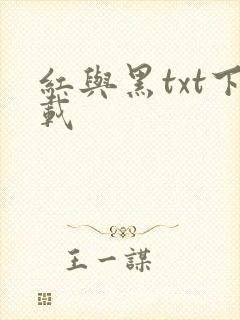 紅與黑txt下
載
王一謀